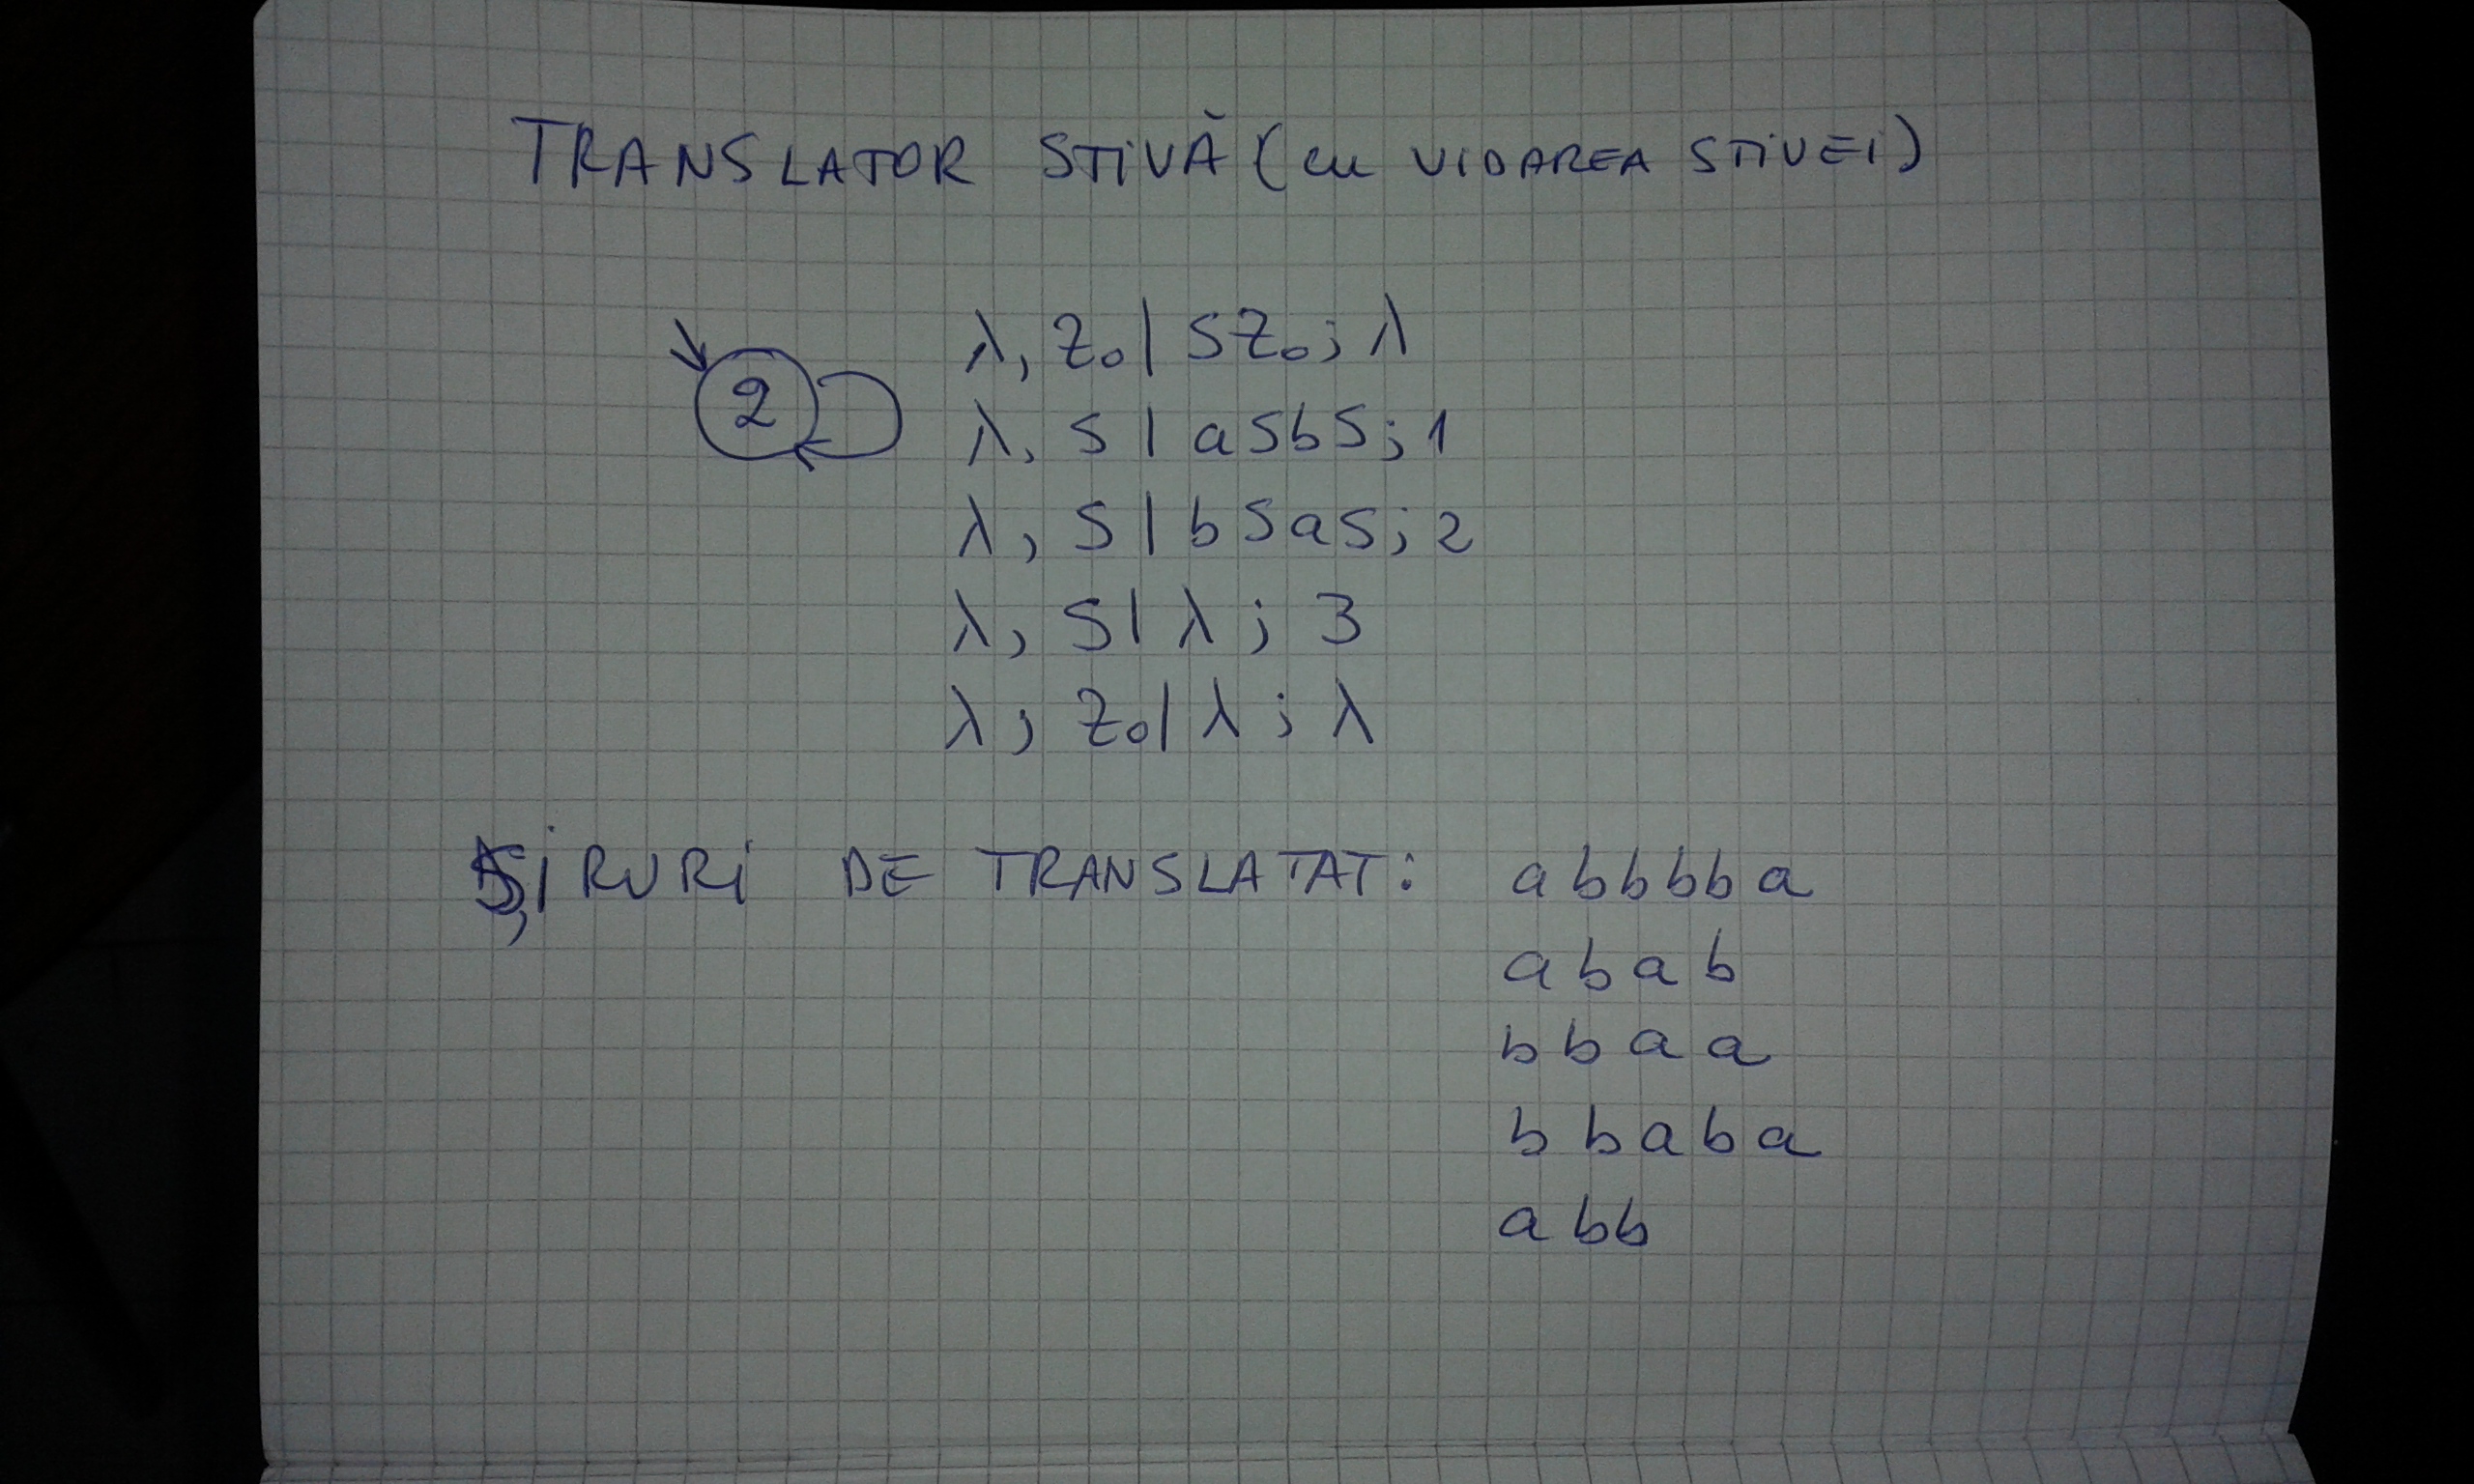 TRANSLATOR STIVĂ (cu VIDAREA STIVEI)
2
λ, Z₀ | SZ₀; λ
λ, S | aSbS; 1
λ, S | bSaS; 2
λ, S | λ; 3
λ, Z₀ | λ; λ
ȘIRURI DE TRANSLATAT: abbbba
abab
bbaa
bbaba
abb